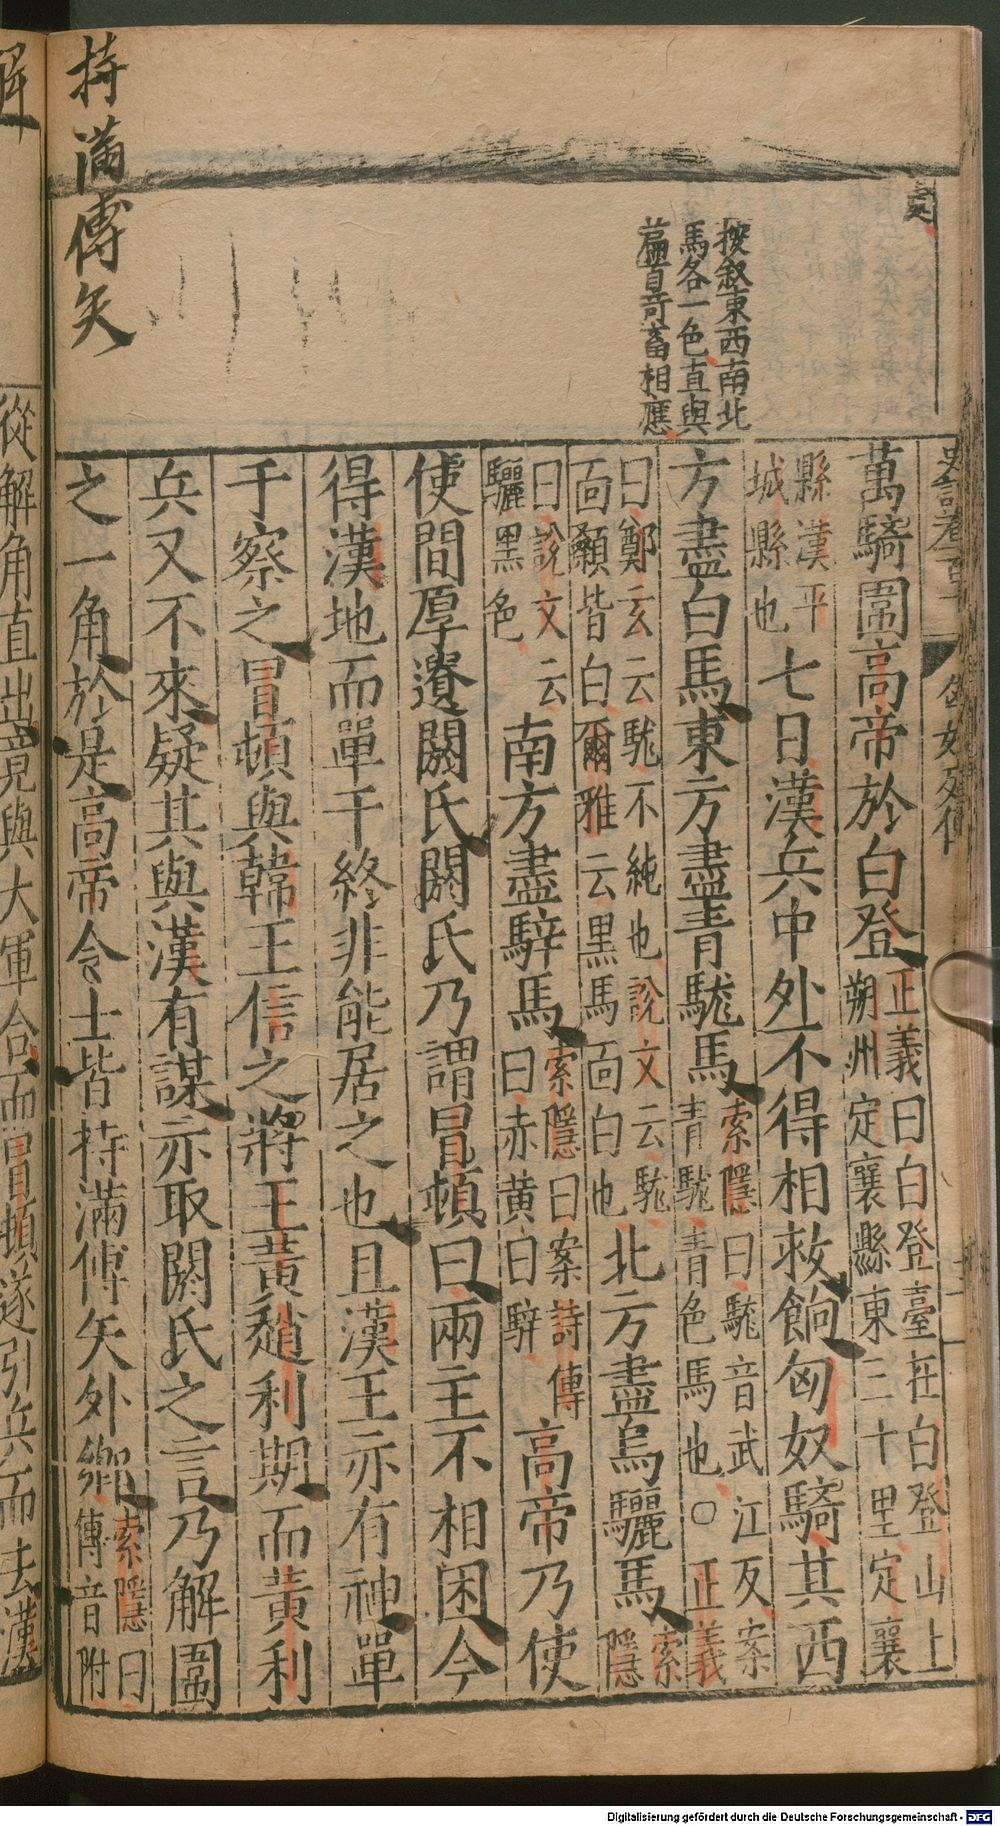 史記卷百十
匈奴列傳
十一
按叙東西南北
馬各一色直與
篇首奇畜相應
萬騎圍高帝於白登正義曰白登臺在白登山上
朔州定襄縣東三十里定襄
縣漢平
城縣也七日漢兵中外不得相救餉匈奴騎其西
方盡白馬東方盡青駹馬索隱曰駹音武江反案
青駹青色馬也○正義
曰鄭玄云駹不純也說文云駹
面顙皆白爾雅云黑馬面白也北方盡烏驪馬索
隱
曰說文云
驪黑色南方盡騂馬索隱曰案詩傳
曰赤黃曰騂高帝乃使
使間厚遺閼氏閼氏乃謂冒頓曰兩主不相困今
得漢地而單于終非能居之也且漢王亦有神單
于察之冒頓與韓王信之將王黃趙利期而黃利
兵又不來疑其與漢有謀亦取閼氏之言乃解圍
之一角於是高帝令士皆持滿傅矢外鄉索隱曰
傅音附
持滿傅矢
從解角直出竟與大軍合而冒頓遂引兵而去漢
解
Digitalisierung gefördert durch die Deutsche Forschungsgemeinschaft - DFG